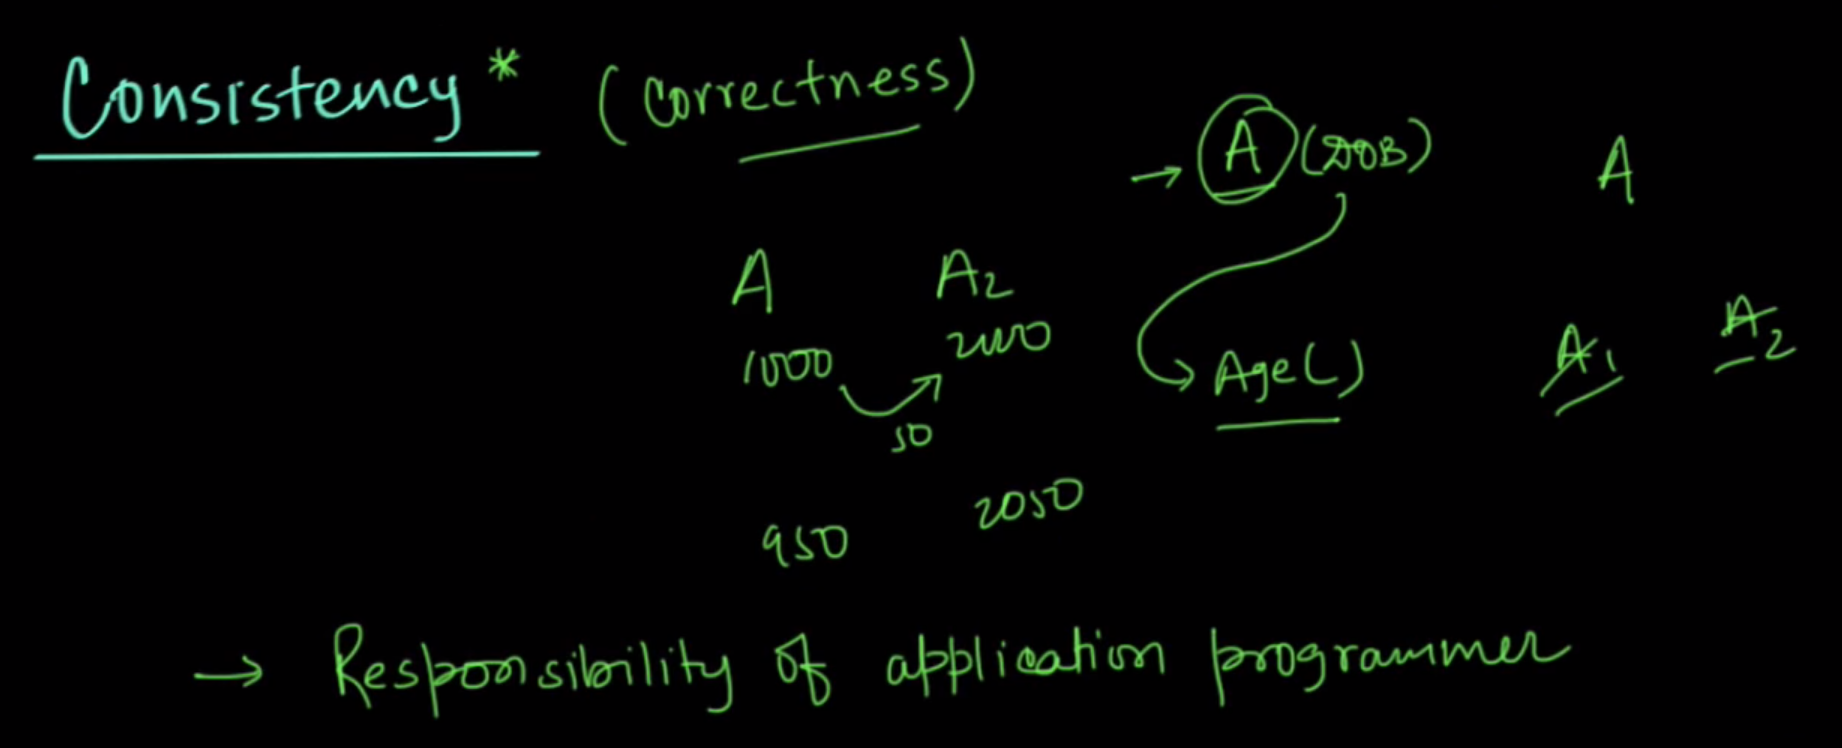 Consistency* (Correctness)
→ A (DOB) A
A A2
1000 2000
50
Age()
A1 A2
950 2050
→ Responsibility of application programmer